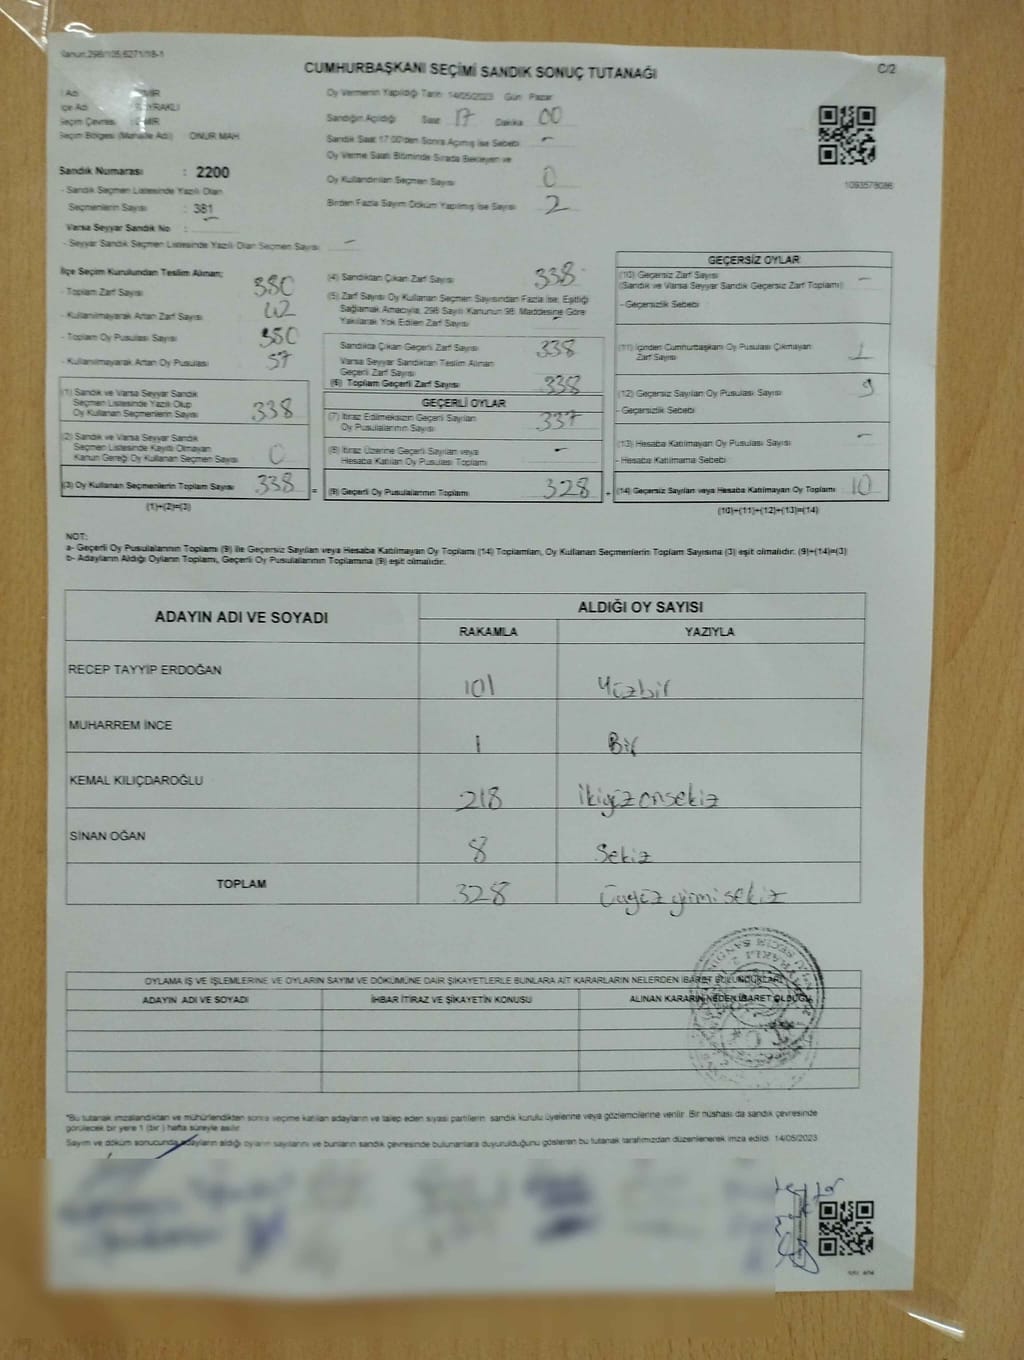 Kanun:298/105,6271/18-1
CUMHURBAŞKANI SEÇİMİ SANDIK SONUÇ TUTANAĞI
C/2
İl Adı : İZMİR
İlçe Adı : BAYRAKLI
Seçim Çevresi : İZMİR
Seçim Bölgesi (Mahalle Adı) : ONUR MAH
Sandık Numarası : 2200
- Sandık Seçmen Listesinde Yazılı Olan
Seçmenlerin Sayısı : 381
Varsa Seyyar Sandık No :
- Seyyar Sandık Seçmen Listesinde Yazılı Olan Seçmen Sayısı : -
Oy Vermenin Yapıldığı Tarih : 14/05/2023 Gün : Pazar
Sandığın Açıldığı Saat : 17 Dakika : 00
Sandık Saat 17:00'den Sonra Açılmış İse Sebebi : -
Oy Verme Saati Bitiminde Sırada Bekleyen ve
Oy Kullandırılan Seçmen Sayısı : 0
Birden Fazla Sayım Döküm Yapılmış İse Sayısı : 2
1093578086
İlçe Seçim Kurulundan Teslim Alınan;
- Toplam Zarf Sayısı : 380
- Kullanılmayarak Artan Zarf Sayısı : 42
- Toplam Oy Pusulası Sayısı : 380
- Kullanılmayarak Artan Oy Pusulası :
(1) Sandık ve Varsa Seyyar Sandık
Seçmen Listesinde Yazılı Olup
Oy Kullanan Seçmenlerin Sayısı : 338
(2) Sandık ve Varsa Seyyar Sandık
Seçmen Listesinde Kayıtlı Olmayan
Kanun Gereği Oy Kullanan Seçmen Sayısı : 0
(3) Oy Kullanan Seçmenlerin Toplam Sayısı : 338
(1)+(2)=(3)
(4) Sandıktan Çıkan Zarf Sayısı : 338
(5) Zarf Sayısı Oy Kullanan Seçmen Sayısından Fazla İse, Eşitliği
Sağlamak Amacıyla, 298 Sayılı Kanunun 98. Maddesine Göre
Yakılarak Yok Edilen Zarf Sayısı : -
Sandıkta Çıkan Geçerli Zarf Sayısı : 338
Varsa Seyyar Sandıktan Teslim Alınan
Geçerli Zarf Sayısı :
(6) Toplam Geçerli Zarf Sayısı : 338
GEÇERLİ OYLAR
(7) İtiraz Edilmeksizin Geçerli Sayılan
Oy Pusulalarının Sayısı : 337
(8) İtiraz Üzerine Geçerli Sayılan veya
Hesaba Katılan Oy Pusulası Toplamı : -
= (9) Geçerli Oy Pusulalarının Toplamı : 328 +
GEÇERSİZ OYLAR
(10) Geçersiz Zarf Sayısı : -
(Sandık ve Varsa Seyyar Sandık Geçersiz Zarf Toplamı)
- Geçersizlik Sebebi :
(11) İçinden Cumhurbaşkanı Oy Pusulası Çıkmayan
Zarf Sayısı : 1
(12) Geçersiz Sayılan Oy Pusulası Sayısı : 9
- Geçersizlik Sebebi :
(13) Hesaba Katılmayan Oy Pusulası Sayısı : -
- Hesaba Katılmama Sebebi :
(14) Geçersiz Sayılan veya Hesaba Katılmayan Oy Toplamı : 10
(10)+(11)+(12)+(13)=(14)
NOT:
a- Geçerli Oy Pusulalarının Toplamı (9) ile Geçersiz Sayılan veya Hesaba Katılmayan Oy Toplamı (14) Toplamları, Oy Kullanan Seçmenlerin Toplam Sayısına (3) eşit olmalıdır. (9)+(14)=(3)
b- Adayların Aldığı Oyların Toplamı, Geçerli Oy Pusulalarının Toplamına (9) eşit olmalıdır.
ADAYIN ADI VE SOYADI
ALDIĞI OY SAYISI
RAKAMLA YAZIYLA
RECEP TAYYİP ERDOĞAN 101 Yüzbir
MUHARREM İNCE 1 Bir
KEMAL KILIÇDAROĞLU 218 İkiyüz onsekiz
SİNAN OĞAN 8 Sekiz
TOPLAM 328 Üçyüz yirmisekiz
OYLAMA İŞ VE İŞLEMLERİNE VE OYLARIN SAYIM VE DÖKÜMÜNE DAİR ŞİKAYETLERLE BUNLARA AİT KARARLARIN NELERDEN İBARET BULUNDUKLARI
ADAYIN ADI VE SOYADI İHBAR İTİRAZ VE ŞİKAYETİN KONUSU ALINAN KARARIN NEDEN İBARET OLDUĞU
*Bu tutanak imzalandıktan ve mühürlendikten sonra seçime katılan adayların ve talep eden siyasi partilerin sandık kurulu üyelerine veya gözlemcilerine verilir. Bir nüshası da sandık çevresinde
görülecek bir yere 1 (bir) hafta süreyle asılır.
Sayım ve döküm sonucunda adayların aldığı oyların sayılarını ve bunların sandık çevresinde bulunanlara duyurulduğunu gösteren bu tutanak tarafımızdan düzenlenerek imza edildi. 14/05/2023